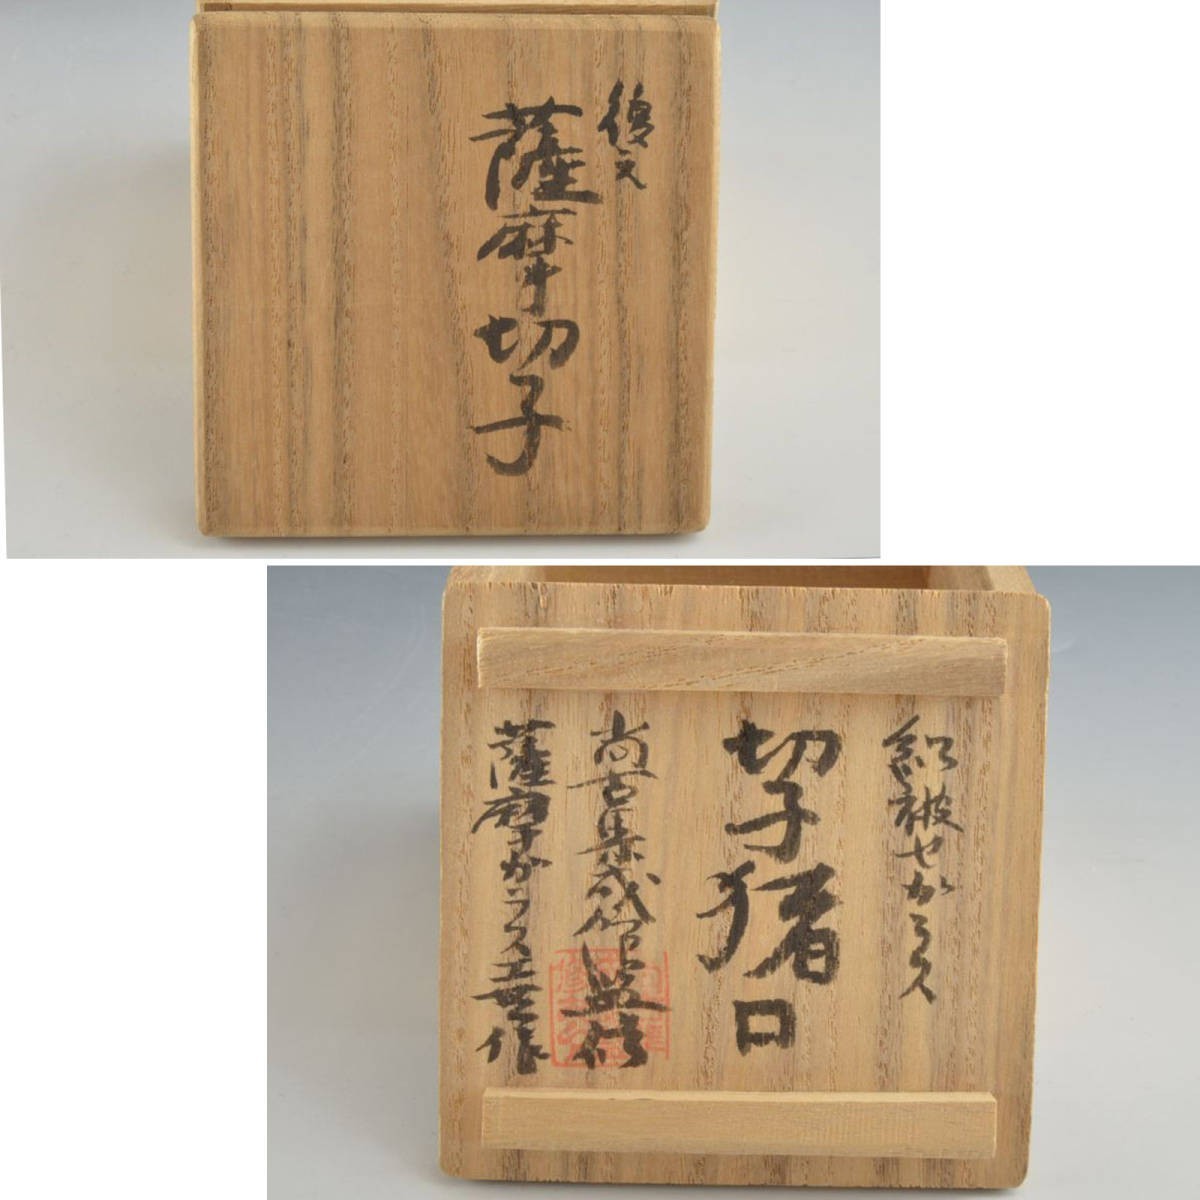 復元
薩摩切子
紅被せガラス
切子猪口
尚古集成館監修
薩摩ガラス工芸作